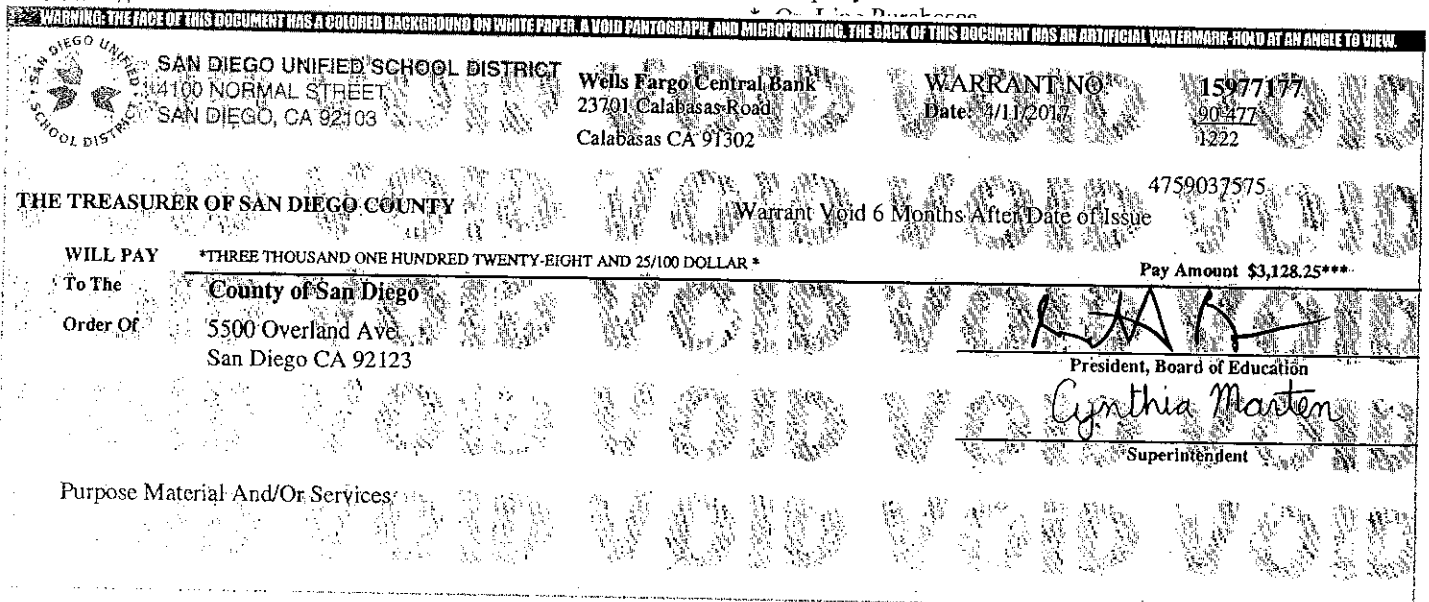 * On-Line Purchases
WARNING: THE FACE OF THIS DOCUMENT HAS A COLORED BACKGROUND ON WHITE PAPER, A VOID PANTOGRAPH, AND MICROPRINTING. THE BACK OF THIS DOCUMENT HAS AN ARTIFICIAL WATERMARK-HOLD AT AN ANGLE TO VIEW.
SAN DIEGO UNIFIED
SCHOOL DISTRICT
SAN DIEGO UNIFIED SCHOOL DISTRICT
4100 NORMAL STREET
SAN DIEGO, CA 92103
Wells Fargo Central Bank
23701 Calabasas Road
Calabasas CA 91302
WARRANT NO. 15977177
Date: 4/11/2017 90-477
1222
4759037575
THE TREASURER OF SAN DIEGO COUNTY Warrant Void 6 Months After Date of Issue
WILL PAY *THREE THOUSAND ONE HUNDRED TWENTY-EIGHT AND 25/100 DOLLAR * Pay Amount $3,128.25***
To The County of San Diego
Order Of 5500 Overland Ave
San Diego CA 92123
President, Board of Education
Cynthia Marten
Superintendent
Purpose Material And/Or Services
VOID VOID VOID VOID VOID